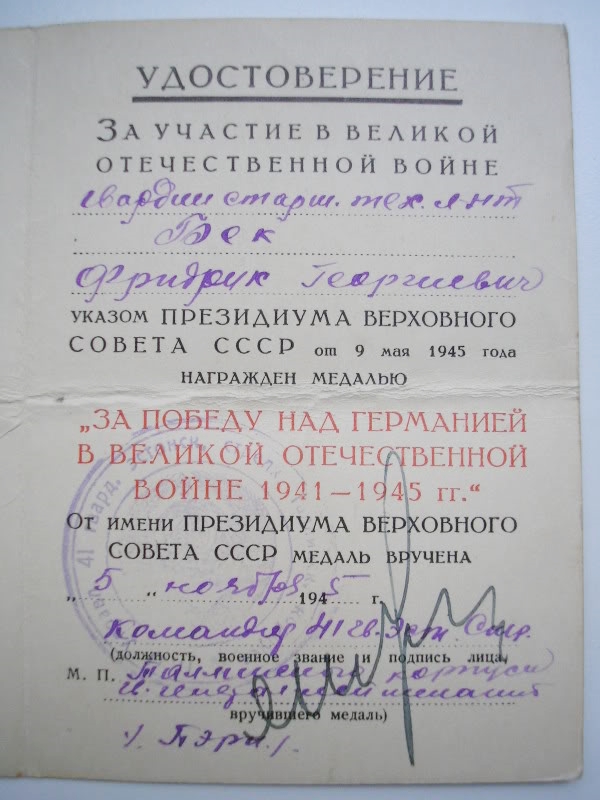 УДОСТОВЕРЕНИЕ
ЗА УЧАСТИЕ В ВЕЛИКОЙ
ОТЕЧЕСТВЕННОЙ ВОЙНЕ
гвардии старш. тех. л-нт
Бек
Фридрик Георгиевич
УКАЗОМ ПРЕЗИДИУМА ВЕРХОВНОГО
СОВЕТА СССР от 9 мая 1945 года
НАГРАЖДЕН МЕДАЛЬЮ
„ЗА ПОБЕДУ НАД ГЕРМАНИЕЙ
В ВЕЛИКОЙ ОТЕЧЕСТВЕННОЙ
ВОЙНЕ 1941—1945 гг.“
От имени ПРЕЗИДИУМА ВЕРХОВНОГО
СОВЕТА СССР МЕДАЛЬ ВРУЧЕНА
„5„ ноября 1945 г.
Командир 41 гв. Эст. Стр.
(должность, военное звание и подпись лица,
М. П. Таллинского корпуса
вручившего медаль)
/. Пэрн /.
41 гвард. эстонск. стрелк.